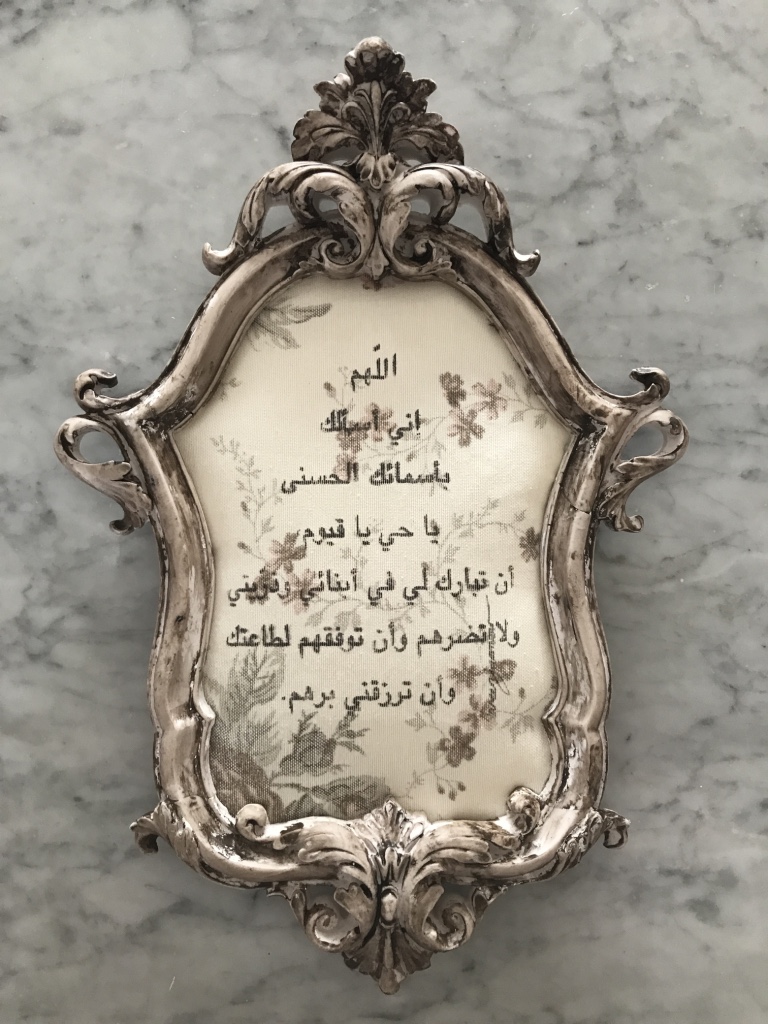 اللّهم
إني أسألك
بأسمائك الحسنى
يا حي يا قيوم
أن تبارك لي في أبنائي وذريتي
ولا تضرهم وأن توفقهم لطاعتك
وأن ترزقني برهم.